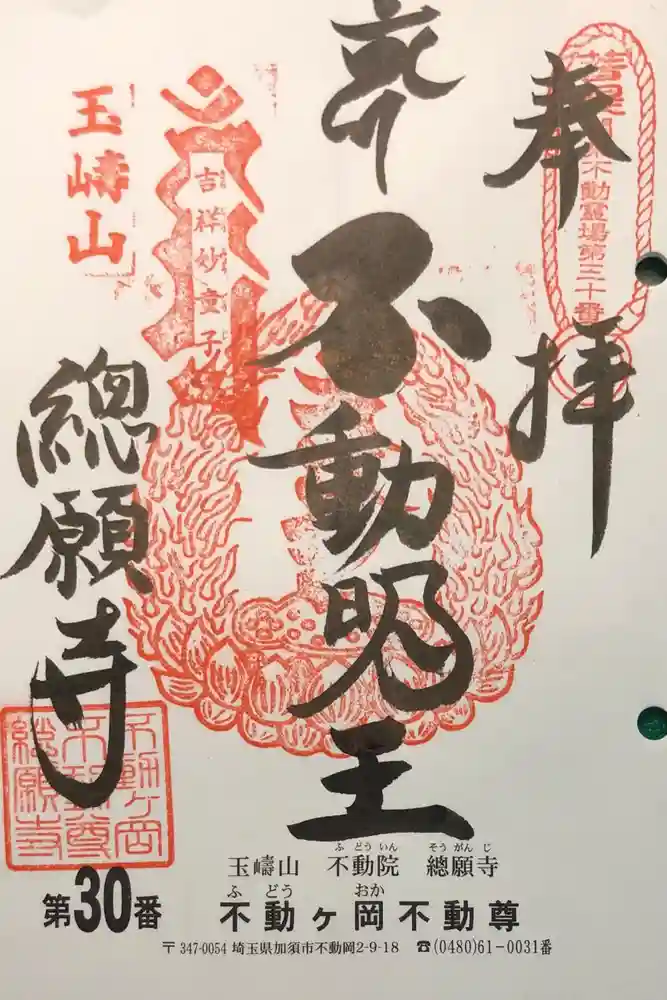 奉拝
不動明王
總願寺
玉嶹山
吉祥妙童子
関東不動霊場第三十番
不動ヶ岡
不動尊
總願寺
玉嶹山　不動院　總願寺
ふどういん　そうがんじ
第30番
ふどう　おか
不動ヶ岡不動尊
〒347-0054 埼玉県加須市不動岡2-9-18　☎(0480)61-0031番